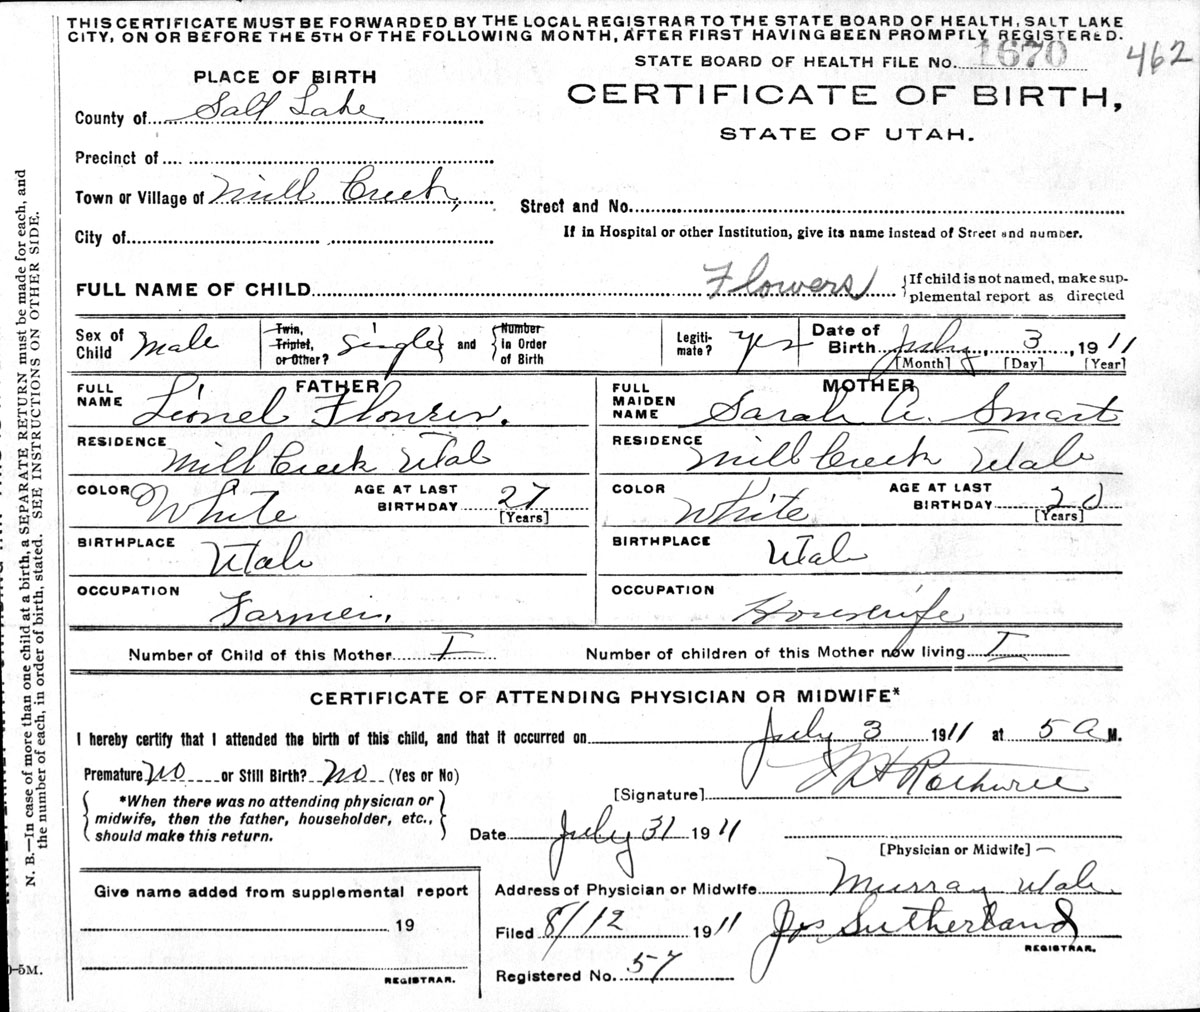 THIS CERTIFICATE MUST BE FORWARDED BY THE LOCAL REGISTRAR TO THE STATE BOARD OF HEALTH, SALT LAKE
CITY, ON OR BEFORE THE 5TH OF THE FOLLOWING MONTH, AFTER FIRST HAVING BEEN PROMPTLY REGISTERED.
STATE BOARD OF HEALTH FILE No. 1670 462
PLACE OF BIRTH
CERTIFICATE OF BIRTH,
County of Salt Lake
STATE OF UTAH.
Precinct of
Town or Village of Mill Creek,
Street and No.
City of
If in Hospital or other Institution, give its name instead of Street and number.
FULL NAME OF CHILD Flowers {If child is not named, make sup-
plemental report as directed
Sex of Child Male Twin, Triplet, or Other? Single and Number in Order of Birth Legiti-mate? Yes Date of Birth July 3, 1911
[Month] [Day] [Year]
FATHER
MOTHER
FULL NAME Lionel Flowers.
FULL MAIDEN NAME Sarah A. Smart
RESIDENCE Mill Creek Utah
RESIDENCE Mill Creek Utah
COLOR White AGE AT LAST BIRTHDAY 27 [Years]
COLOR White AGE AT LAST BIRTHDAY 20 [Years]
BIRTHPLACE Utah
BIRTHPLACE Utah
OCCUPATION Farmer,
OCCUPATION Housewife
Number of Child of this Mother I Number of children of this Mother now living I
CERTIFICATE OF ATTENDING PHYSICIAN OR MIDWIFE*
I hereby certify that I attended the birth of this child, and that it occurred on July 3 1911 at 5 A M.
Premature No or Still Birth? No (Yes or No)
[Signature]
*When there was no attending physician or
midwife, then the father, householder, etc.,
should make this return.
Date July 31 1911
[Physician or Midwife]
Give name added from supplemental report
19
REGISTRAR.
Address of Physician or Midwife Murray Utah
Filed 8/12 1911 Jos Sutherland
REGISTRAR.
Registered No. 57
N. B.—In case of more than one child at a birth, a SEPARATE RETURN must be made for each, and
the number of each, in order of birth, stated. SEE INSTRUCTIONS ON OTHER SIDE.
-5M.